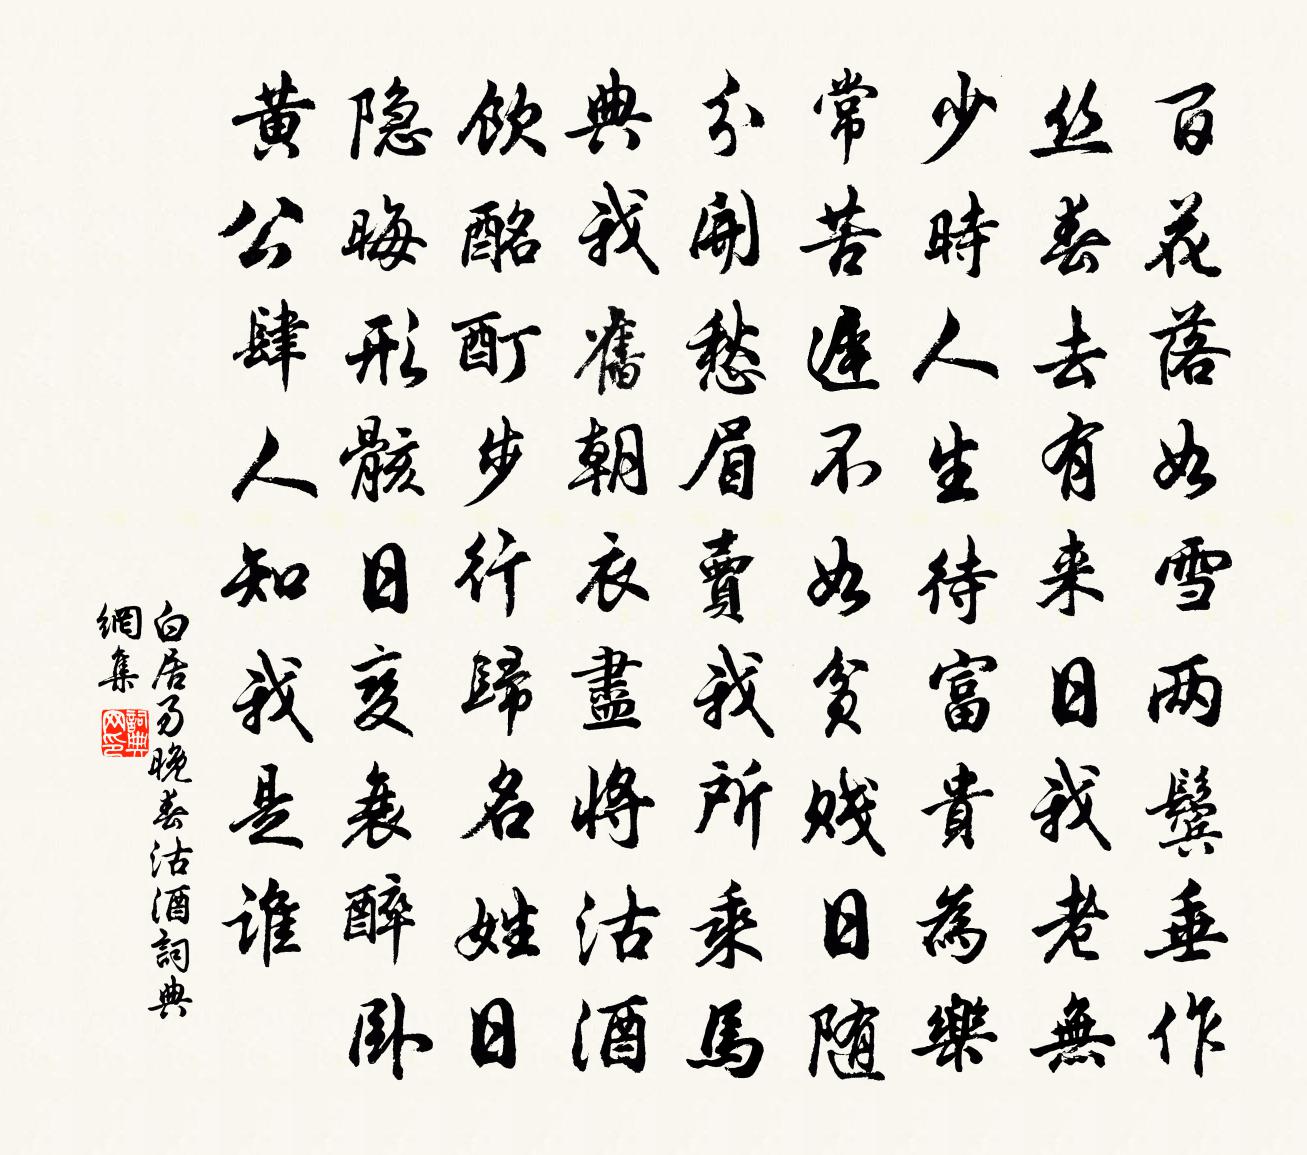 百花落如雪两鬓垂作
丝春去有来日我老無
少時人生待富貴為樂
常苦遲不如貧賤日随
分開愁眉賣我所乘馬
典我舊朝衣盡將沽酒
飲酩酊步行歸名姓日
隐晦形骸日变衰醉卧
黄公肆人知我是谁
白居易晚春沽酒詞典
網集
詞典网印